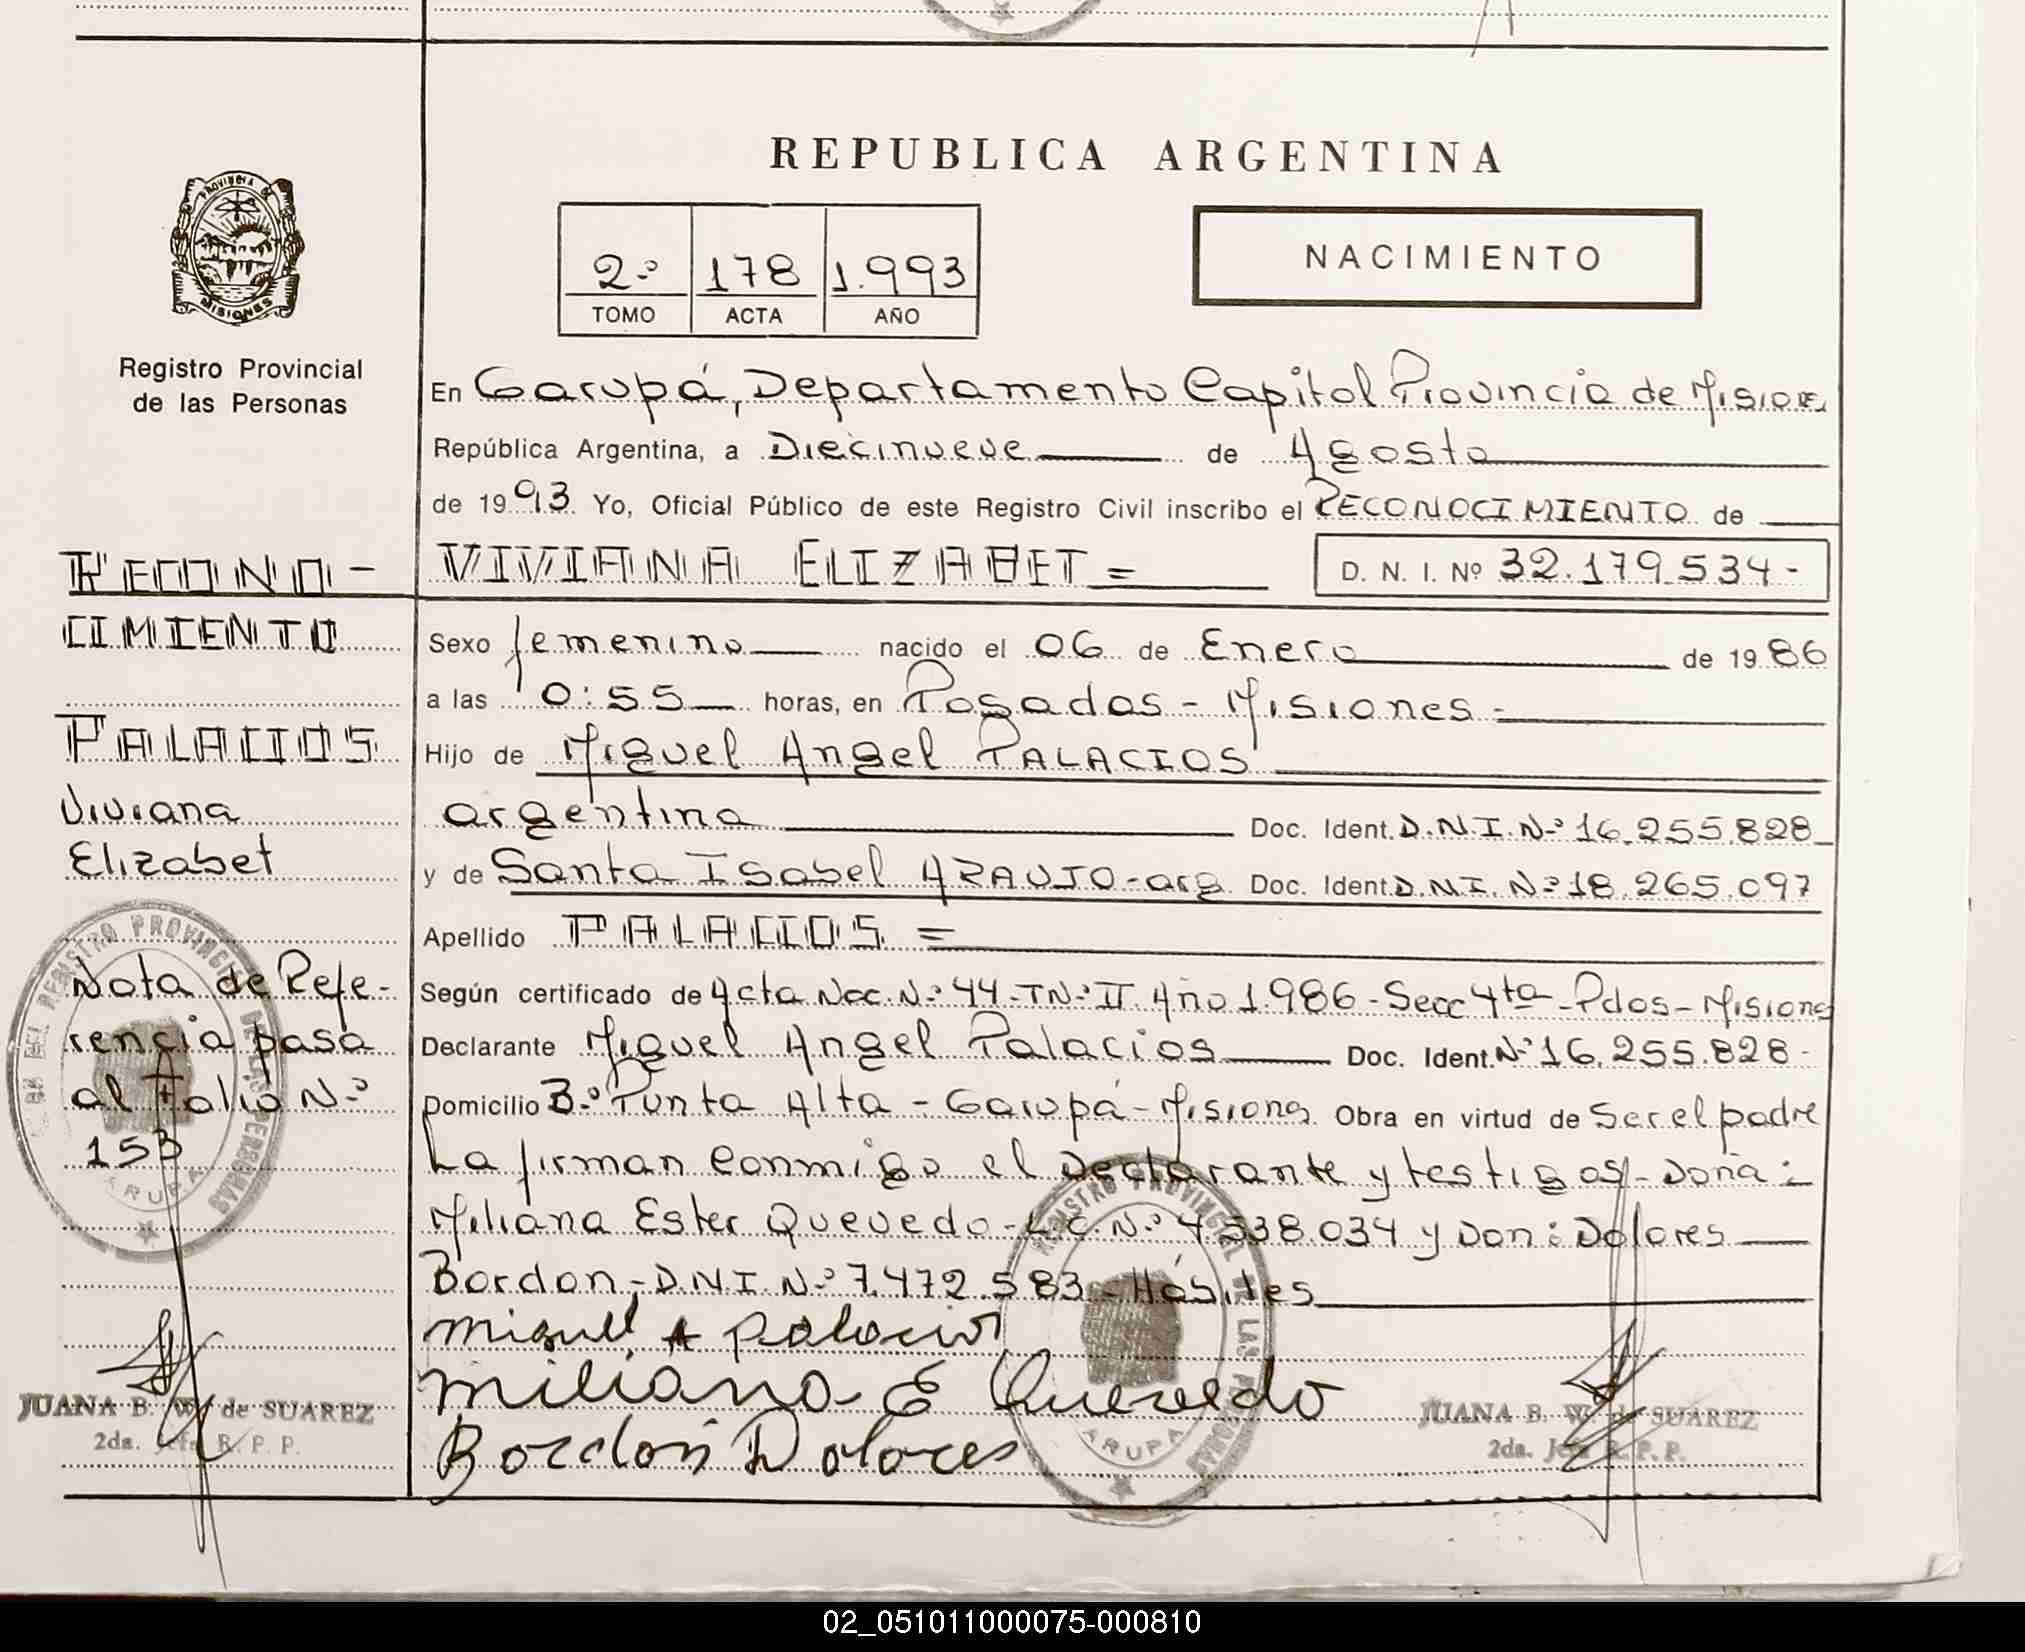 REPUBLICA ARGENTINA
PROVINCIA DE
MISIONES
Registro Provincial
de las Personas
2º 178 1.993
TOMO ACTA AÑO
NACIMIENTO
En Garupá, Departamento Capital Provincia de Misiones
República Argentina, a Diecinueve de Agosto
de 1993 Yo, Oficial Público de este Registro Civil inscribo el RECONOCIMIENTO de
VIVIANA ELIZABET = D. N. I. Nº 32.179.534-
Sexo femenino nacido el 06 de Enero de 1986
a las 0:55 horas, en Posadas - Misiones -
Hijo de Miguel Angel PALACIOS
argentina Doc. Ident. D.N.I. Nº 16.255.828
y de Santa Isabel ARAUJO - arg Doc. Ident. D.N.I. Nº 18.265.097
Apellido PALACIOS =
Según certificado de Acta Nac. Nº 44 - TNº II Año 1.986 - Secc 4ta - Pdas - Misiones
Declarante Miguel Angel Palacios Doc. Ident. Nº 16.255.828-
Domicilio Bº Punta Alta - Garupá - Misiones Obra en virtud de Ser el padre
La firman conmigo el Declarante y testigos - Doña:
Miliana Ester Quevedo - L.C. Nº 4.538.034 y Don: Dolores
Bordon, - D.N.I. Nº 7.472.583 - Hábiles
Miguel A Palacios
Miliana E Quevedo
Bordon Dolores
JUANA B. W. de SUAREZ
2da. Jefe R. P. P.
RECONO-
CIMIENTO
PALACIOS
Viviana
Elizabet
Nota de Refe-
rencia pasa
al Folio Nº
153
JUANA B. W. de SUAREZ
2da. Jefe R. P. P.
REGISTRO PROVINCIAL DE LAS PERSONAS
GARUPA
REGISTRO PROVINCIAL DE LAS PERSONAS
GARUPA
02_051011000075-000810